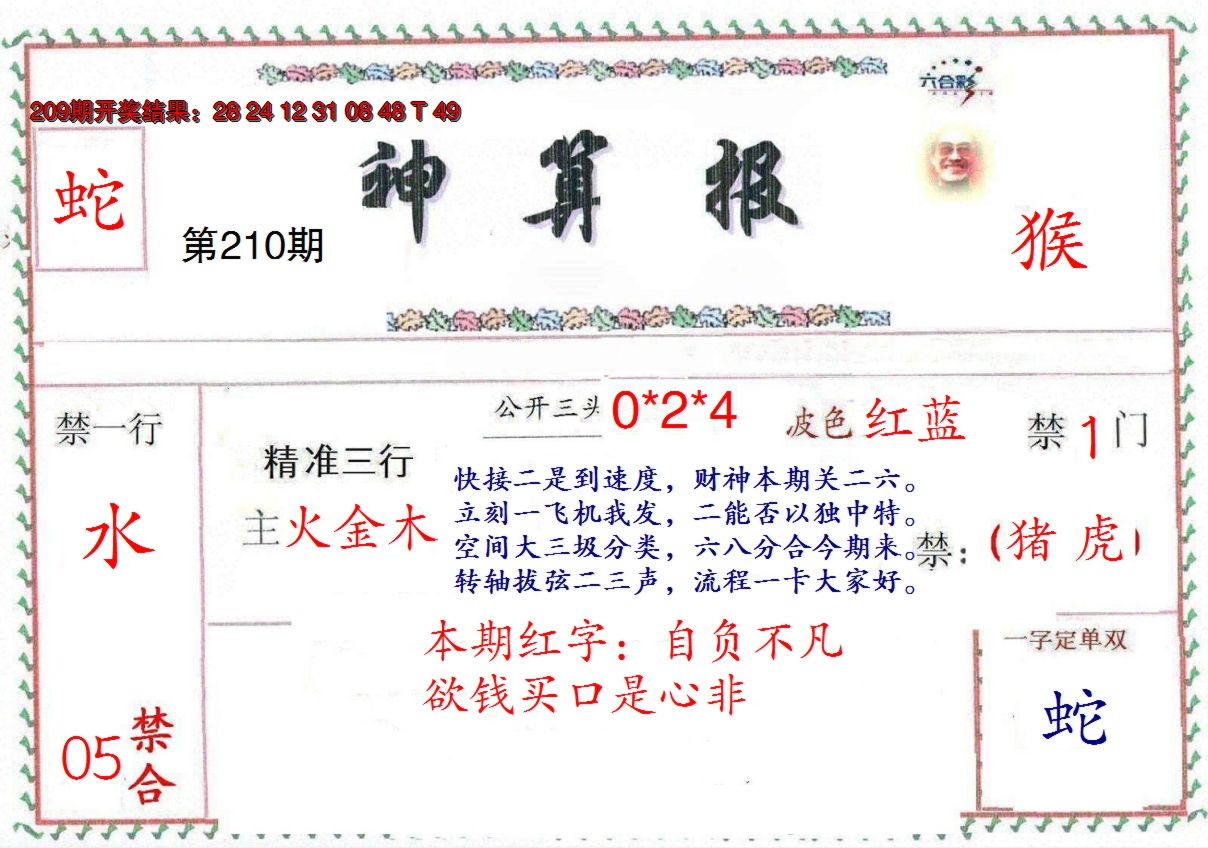 六合彩
209期开奖结果：28 24 12 31 08 48 T 49
神算报
蛇
第210期
猴
公开三头 0*2*4
波色 红蓝
禁1门
禁一行
水
精准三行
主火金木
快接二是到速度，财神本期关二六。
立刻一飞机我发，二能否以独中特。
空间大三圾分类，六八分合今期来。
转轴拔弦二三声，流程一卡大家好。
禁：（猪 虎）
本期红字：自负不凡
欲钱买口是心非
一字定单双
蛇
05禁合